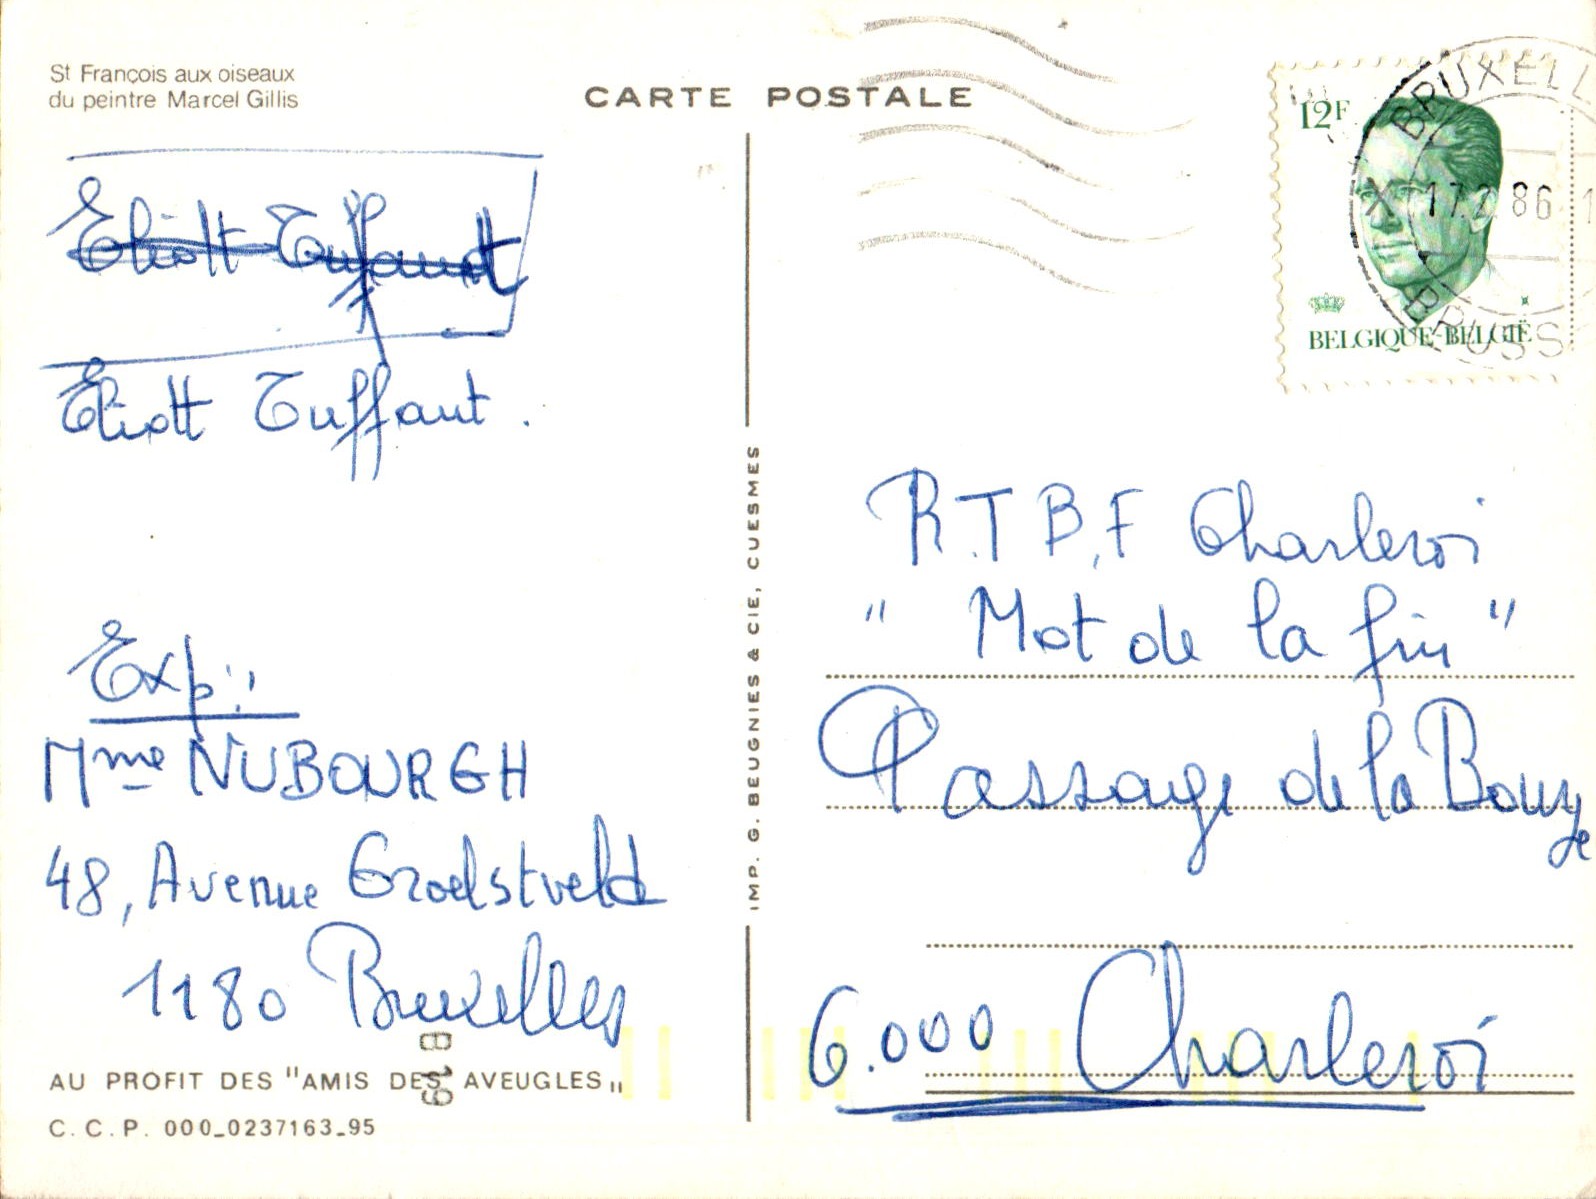 St François aux oiseaux
du peintre Marcel Gillis
CARTE POSTALE
12F
BRUXELL
X 17.2.86 1
BRUSS
BELGIQUE-BELGIË
Eliott Tuffaut
Eliott Tuffaut.
R.T.B.F Charleroi
"Mot de la fin"
Passage de la Bourse
6.000 Charleroi
Exp:
Mme NUBOURGH
48, Avenue Groelstveld
1180 Bruxelles
B 19
AU PROFIT DES "AMIS DES AVEUGLES"
C.C.P. 000-0237163-95
IMP. G. BEUGNIES & CIE, CUESMES